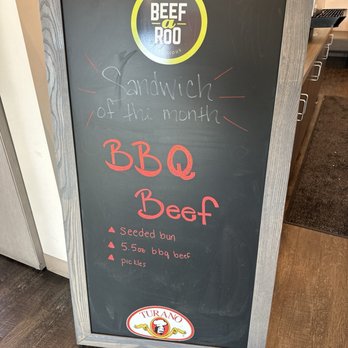 BEEF
a
ROO
Sandwich
of the month
BBQ
Beef
Seeded bun
5.5oz bbq beef
pickles
TURANO